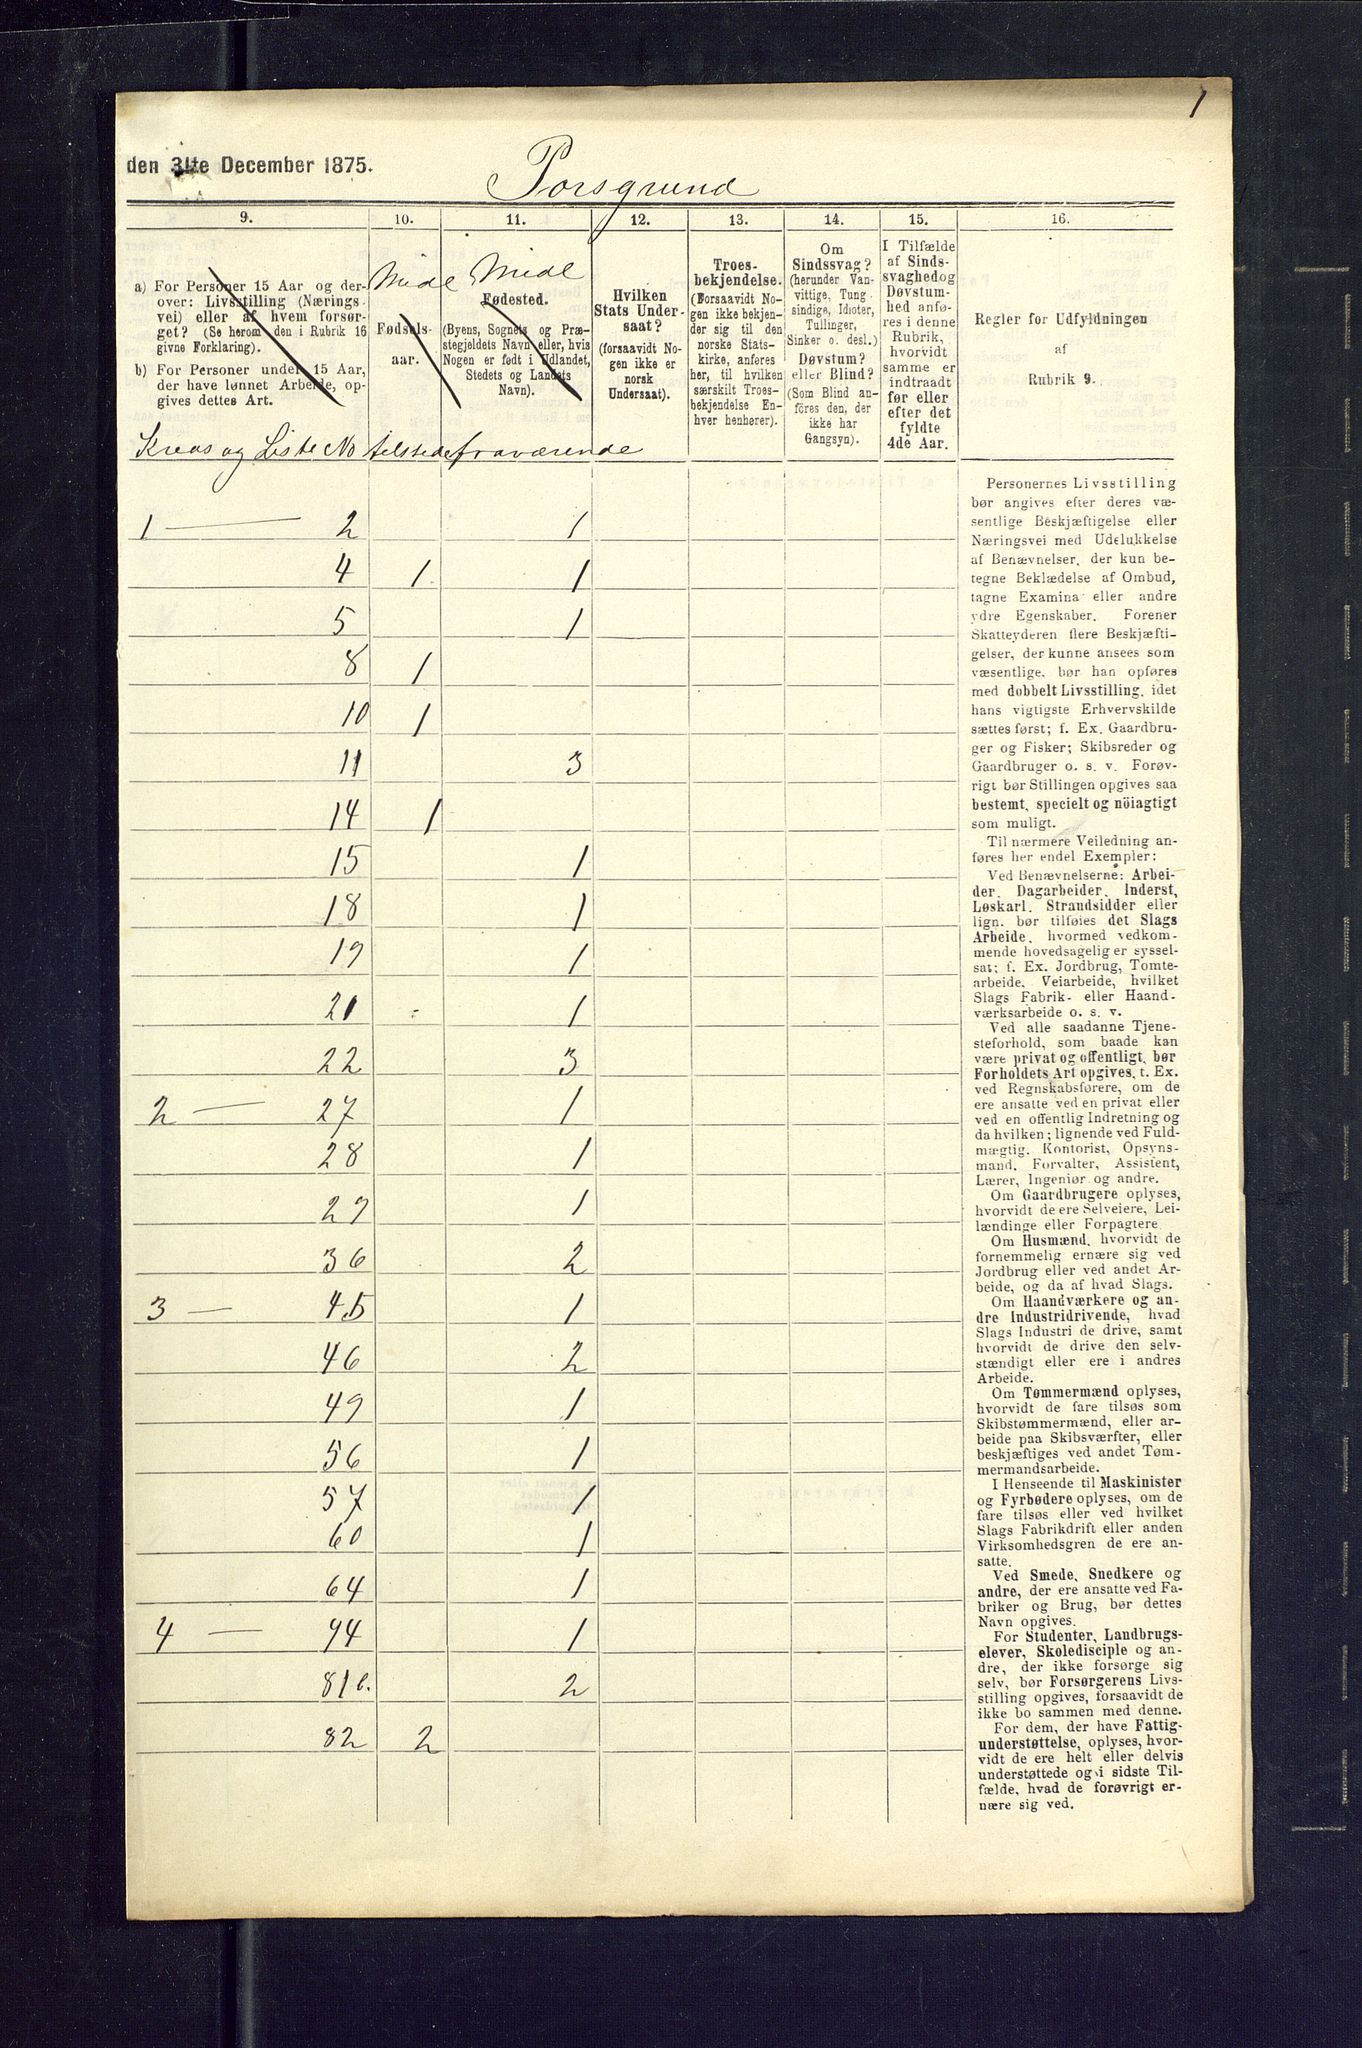 1
den 31te December 1875.
Porsgrund
9.
10.
11.
12.
13.
14.
15.
16.
a) For Personer 15 Aar og der-
over: Livsstilling (Nærings-
vei) eller af hvem forsør-
get? (Se herom den i Rubrik 16
givne Forklaring).
b) For Personer under 15 Aar,
der have lønnet Arbeide, op-
gives dettes Art.
Midl
Fødsels-
aar.
Midl
Fødested.
(Byens, Sognets og Præ-
stegjeldets Navn eller, hvis
Nogen er født i Udlandet,
Stedets og Landets
Navn).
Hvilken
Stats Under-
saat?
(forsaavidt No-
gen ikke er
norsk
Undersaat).
Troes-
bekjendelse.
(Forsaavidt No-
gen ikke bekjen-
der sig til den
norske Stats-
kirke, anføres
her, til hvilken
særskilt Troes-
bekjendelse En-
hver henhører).
Om
Sindssvag?
(herunder Van-
vittige, Tung-
sindige, Idioter,
Tullinger,
Sinker o. desl.)
Døvstum?
eller Blind?
(Som Blind an-
føres den, der
ikke har
Gangsyn).
I Tilfælde
af Sinds-
svaghed og
Døvstum-
hed anfø-
res i denne
Rubrik,
hvorvidt
samme er
indtraadt
før eller
efter det
fyldte
4de Aar.
Regler for Udfyldningen
af
Rubrik 9.
Kreds og Liste No tilstede fraværende
1 — 2 1
4 1 1
5 1
8 1
10 1
11 3
14 1
15 1
18 1
19 1
21 1
22 3
2 — 27 1
28 1
29 1
36 2
3 — 45 1
46 2
49 1
56 1
57 1
60 1
64 1
4 — 94 1
81 b. 2
82 2
Personernes Livsstilling
bør angives efter deres væ-
sentlige Beskjæftigelse eller
Næringsvei med Udelukkelse
af Benævnelser, der kun be-
tegne Beklædelse af Ombud,
tagne Examina eller andre
ydre Egenskaber. Forener
Skatteyderen flere Beskjæfti-
gelser, der kunne ansees som
væsentlige, bør han opføres
med dobbelt Livsstilling, idet
hans vigtigste Erhvervskilde
sættes først; f. Ex. Gaardbru-
ger og Fisker; Skibsreder og
Gaardbruger o. s. v. Forøv-
rigt bør Stillingen opgives saa
bestemt, specielt og nöiagtigt
som muligt.
Til nærmere Veiledning an-
føres her endel Exempler:
Ved Benævnelserne: Arbei-
der, Dagarbeider, Inderst,
Løskarl, Strandsidder eller
lign. bør tilføies det Slags
Arbeide, hvormed vedkom-
mende hovedsagelig er syssel-
sat; f. Ex. Jordbrug, Tomte-
arbeide, Veiarbeide, hvilket
Slags Fabrik- eller Haand-
værksarbeide o. s. v.
Ved alle saadanne Tjene-
steforhold, som baade kan
være privat og offentligt, bør
Forholdets Art opgives, t. Ex.
ved Regnskabsførere, om de
ere ansatte ved en privat eller
ved en offentlig Indretning og
da hvilken; lignende ved Fuld-
mægtig, Kontorist, Opsyns-
mand, Forvalter, Assistent,
Lærer, Ingeniør og andre.
Om Gaardbrugere oplyses,
hvorvidt de ere Selveiere, Lei-
lændinge eller Forpagtere
Om Husmænd, hvorvidt de
fornemmelig ernære sig ved
Jordbrug eller ved andet Ar-
beide, og da af hvad Slags.
Om Haandværkere og an-
dre Industridrivende, hvad
Slags Industri de drive, samt
hvorvidt de drive den selv-
stændigt eller ere i andres
Arbeide.
Om Tømmermænd oplyses,
hvorvidt de fare tilsøs som
Skibstømmermænd, eller ar-
beide paa Skibsværfter, eller
beskjæftiges ved andet Tøm-
mermandsarbeide.
I Henseende til Maskinister
og Fyrbødere oplyses, om de
fare tilsøs eller ved hvilket
Slags Fabrikdrift eller anden
Virksomhedsgren de ere an-
satte.
Ved Smede, Snedkere og
andre, der ere ansatte ved Fa-
briker og Brug, bør dettes
Navn opgives.
For Studenter, Landbrugs-
elever, Skoledisciple og an-
dre, der ikke forsørge sig
selv, bør Forsørgerens Livs-
stilling opgives, forsaavidt de
ikke bo sammen med denne.
For dem, der have Fattig-
understøttelse, oplyses, hvor-
vidt de ere helt eller delvis
understøttede og i sidste Til-
fælde, hvad de forøvrigt er-
nære sig ved.